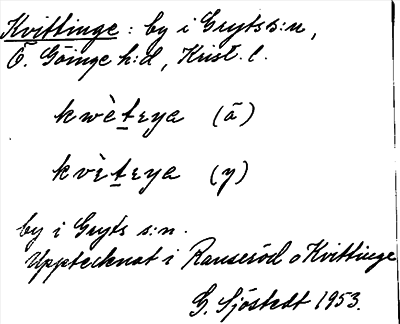 Kvittinge: by i Gryts s:n,
Ö. Göinge h:d, Krist. l.
kwètɛya (ä)
kvètɛya (y)
by i Gryts s:n.
Upptecknat i Ranseröd o Kvittinge
G. Sjöstedt 1953.